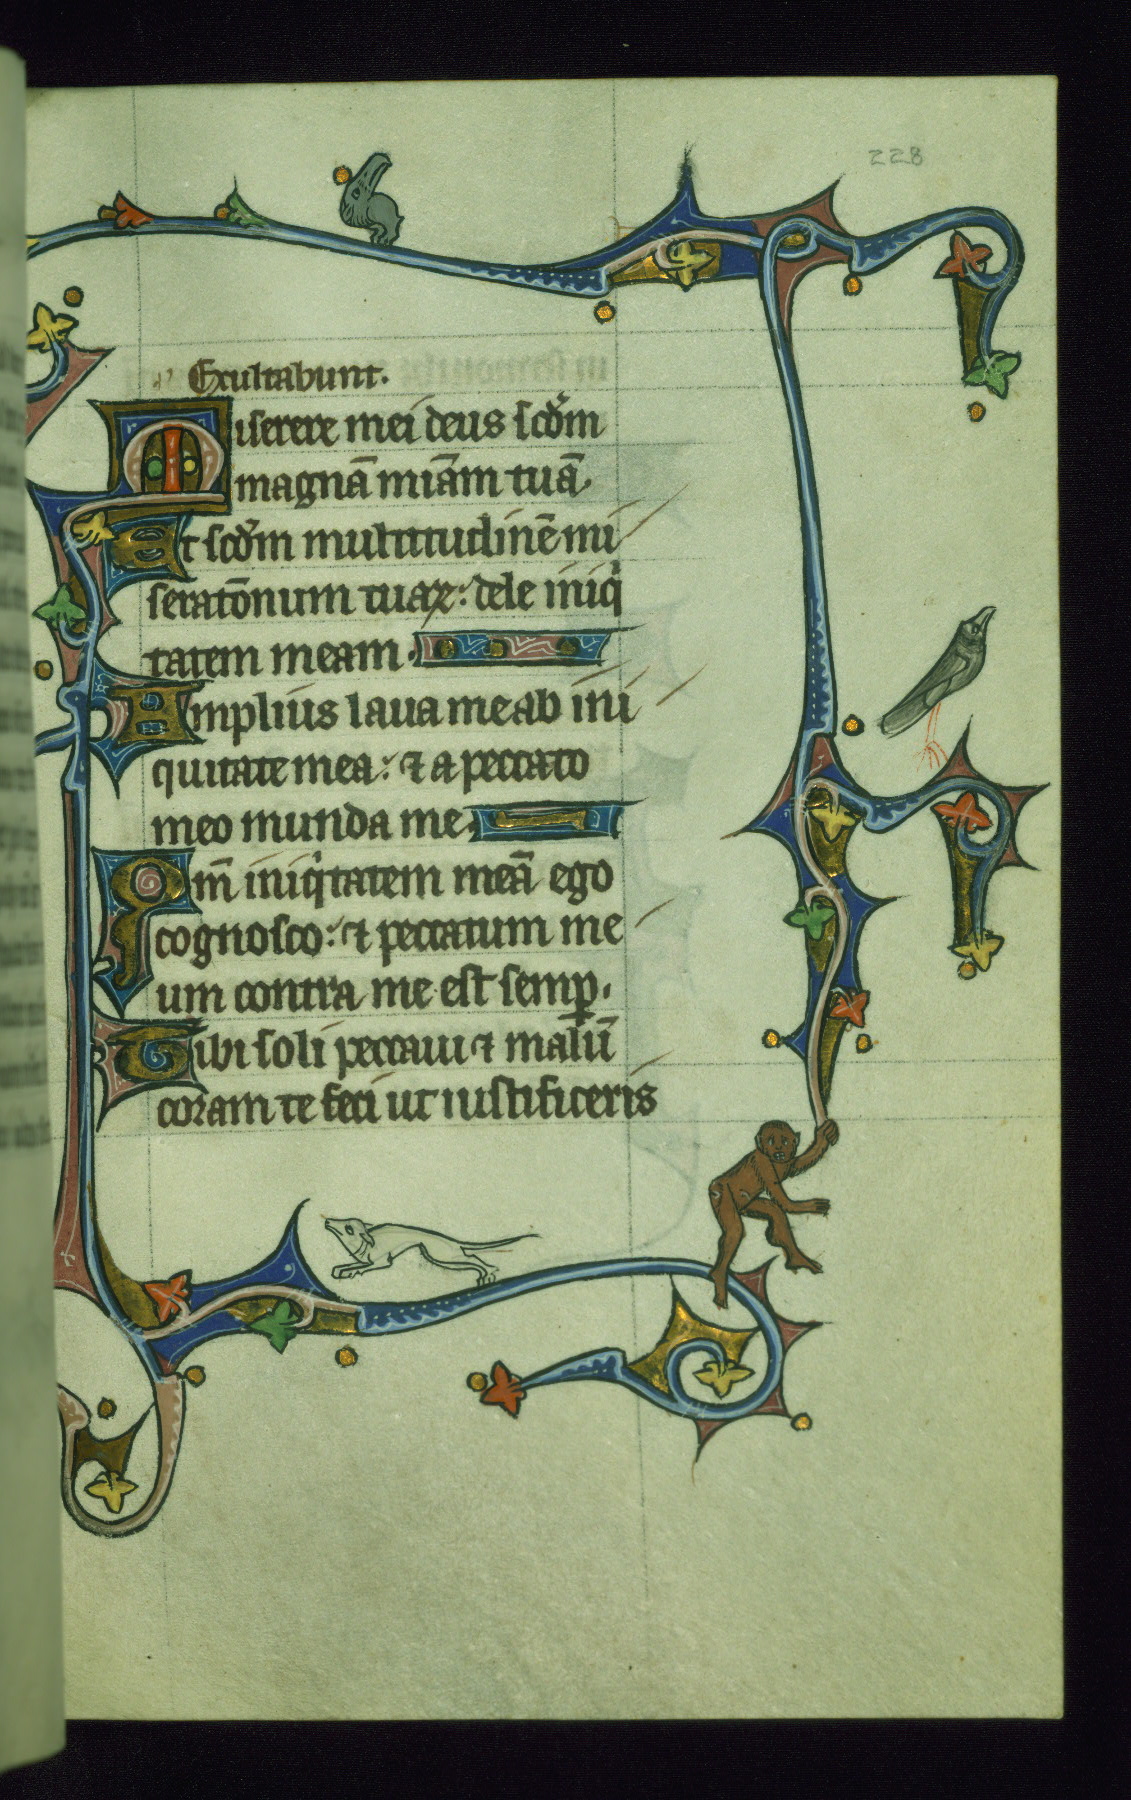 228
Exultabunt.
Miserere mei deus scd'm
magnā miām tuā.
Et scd'm multitudinē mi
seratōnum tuaꝝ: dele iniqͥ
tatem meam.
Amplius laua me ab ini
quitate mea: ⁊ a peccato
meo munda me.
Qm̄ iniqͥtatem meā ego
cognosco: ⁊ peccatum me
um contra me est semꝑ.
Tibi soli peccaui ⁊ malū
coram te feci ut iustificeris